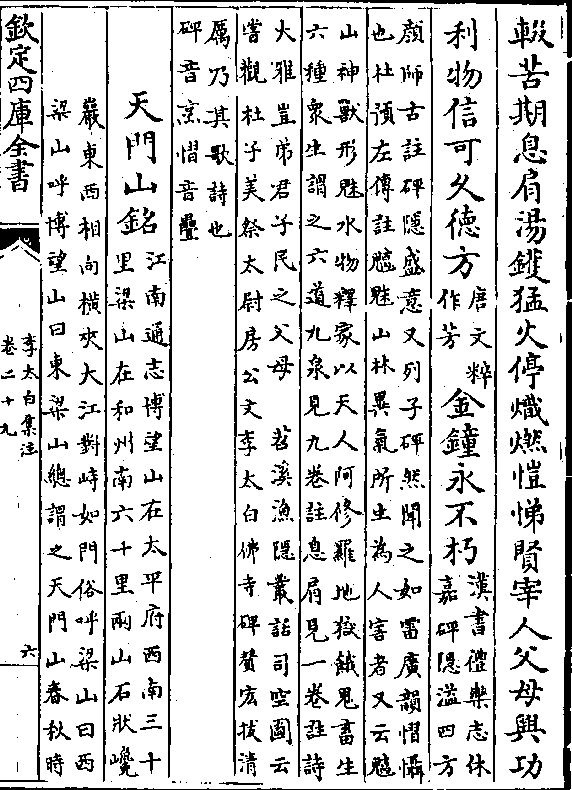 輟苦期息肩湯鑊猛火停熾燃愷悌賢宰人父母興功
利物信可久德方唐文粹作芳金鐘永不朽漢書禮樂志休嘉砰隱溢四方
顔師古註砰隱盛意又列子砰然聞之如雷廣韻慴懾
也杜預左傳註魑魅山林異氣所生為人害者又云魑
山神獸形魅水物釋家以天人阿修羅地獄餓鬼畜生
六種衆生謂之六道九泉見九卷註息肩見一卷註詩
大雅豈弟君子民之父母 苕溪漁隱叢話司空圖云
嘗觀杜子美祭太尉房公文李太白佛寺碑贊宏拔清
厲乃其歌詩也
砰音烹慴音疊
天門山銘江南通志博望山在太平府西南三十里梁山在和州南六十里兩山石狀巉
巖東西相向横夾大江對峙如門俗呼梁山曰西
梁山呼博望山曰東梁山總謂之天門山春秋時
欽定四庫全書
李太白集注
卷二十九
六